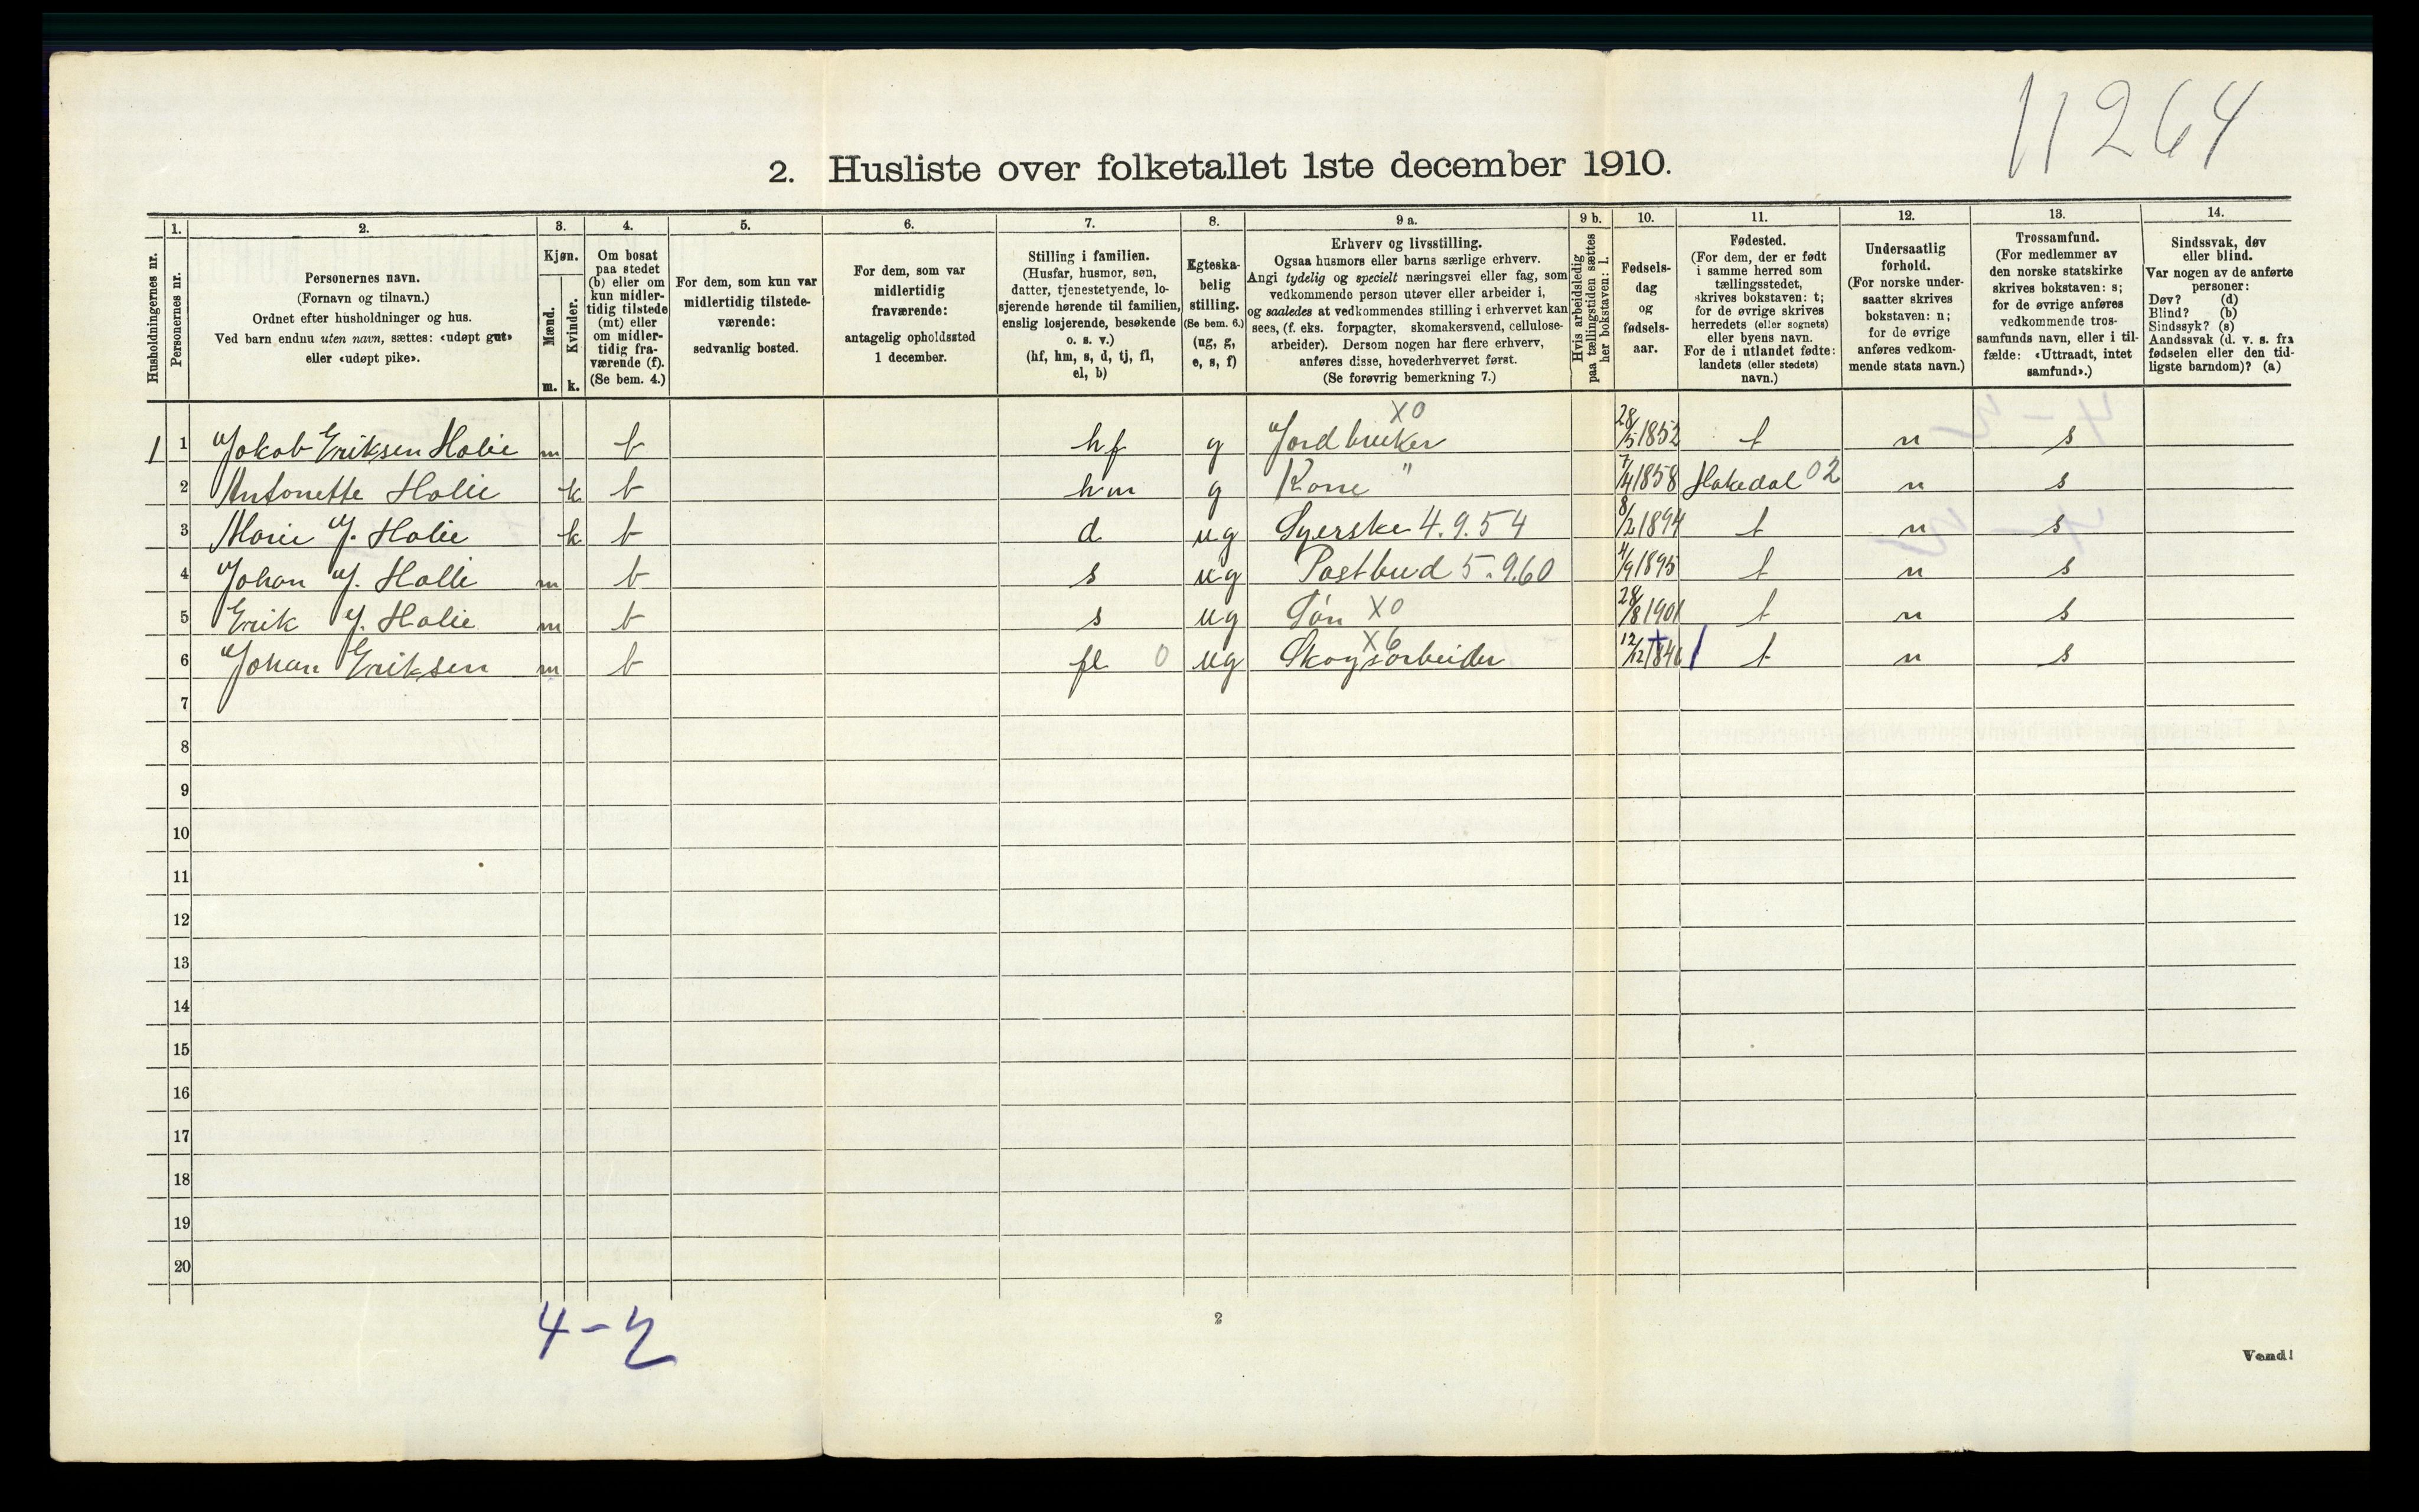 11264
2. Husliste over folketallet 1ste december 1910.
1. 2. 3. 4. 5. 6. 7. 8. 9 a. 9 b. 10. 11. 12. 13. 14.
Husholdningernes nr.
Personernes nr.
Personernes navn.
(Fornavn og tilnavn.)
Ordnet efter husholdninger og hus.
Ved barn endnu uten navn, sættes: «udøpt gut»
eller «udøpt pike».
Kjøn.
Mænd.
Kvinder.
m. k.
Om bosat
paa stedet
(b) eller om
kun midler-
tidig tilstede
(mt) eller
om midler-
tidig fra-
værende (f).
(Se bem. 4.)
For dem, som kun var
midlertidig tilstede-
værende:
sedvanlig bosted.
For dem, som var
midlertidig
fraværende:
antagelig opholdssted
1 december.
Stilling i familien.
(Husfar, husmor, søn,
datter, tjenestetyende, lo-
sjerende hørende til familien,
enslig losjerende, besøkende
o. s. v.)
(hf, hm, s, d, tj, fl,
el, b)
Egteska-
belig
stilling.
(Se bem. 6.)
(ug, g,
e, s, f)
Erhverv og livsstilling.
Ogsaa husmors eller barns særlige erhverv.
Angi tydelig og specielt næringsvei eller fag, som
vedkommende person utøver eller arbeider i,
og saaledes at vedkommendes stilling i erhvervet kan
sees, (f. eks. forpagter, skomakersvend, cellulose-
arbeider). Dersom nogen har flere erhverv,
anføres disse, hovederhvervet først.
(Se forøvrig bemerkning 7.)
Hvis arbeidsledig
paa tællingstiden sættes
her bokstaven: l.
Fødsels-
dag
og
fødsels-
aar.
Fødested.
(For dem, der er født
i samme herred som
tællingsstedet,
skrives bokstaven: t;
for de øvrige skrives
herredets (eller sognets)
eller byens navn.
For de i utlandet fødte:
landets (eller stedets)
navn.)
Undersaatlig
forhold.
(For norske under-
saatter skrives
bokstaven: n;
for de øvrige
anføres vedkom-
mende stats navn.)
Trossamfund.
(For medlemmer av
den norske statskirke
skrives bokstaven: s;
for de øvrige anføres
vedkommende tros-
samfunds navn, eller i til-
fælde: «Uttraadt, intet
samfund».)
Sindssvak, døv
eller blind.
Var nogen av de anførte
personer:
Døv? (d)
Blind? (b)
Sindssyk? (s)
Aandssvak (d. v. s. fra
fødselen eller den tid-
ligste barndom)? (a)
1 1 Jakob Eriksen Holie m b hf g Jordbruker X0 28/5 1852 t n s
2 Antonette Holie k b hm g Kone " 7/4 1858 Hakedal 02 n s
3 Marie J. Holie k b d ug Syerske 4.9.54 8/2 1894 t n s
4 Johan J. Holie m b s ug Postbud 5.9.60 4/9 1895 t n s
5 Erik J. Holie m b s ug Søn X0 28/8 1901 t n s
6 Johan Eriksen m b fl 0 ug Skogsarbeider X6 12/12 1846 t n s
7
8
9
10
11
12
13
14
15
16
17
18
19
20
4-2
2
Vend!